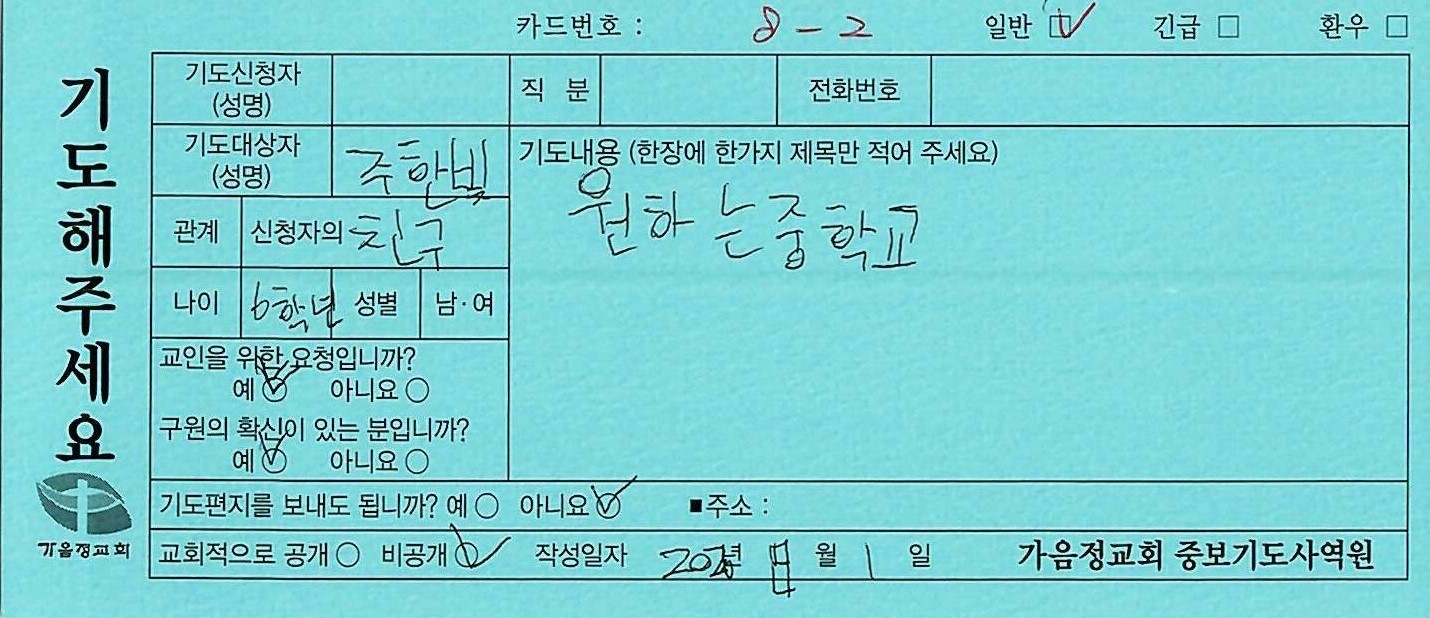 카드번호 : 8-2 일반 ☑ 긴급 □ 환우 □
기도해주세요
가음정교회
기도신청자 (성명) 직 분 전화번호
기도대상자 (성명) 주한빛
관계 신청자의 친구
나이 6학년 성별 남·여
교인을 위한 요청입니까?
예 ☑ 아니요 ○
구원의 확신이 있는 분입니까?
예 ☑ 아니요 ○
기도내용 (한장에 한가지 제목만 적어 주세요)
원하는중학교
기도편지를 보내도 됩니까? 예 ○ 아니요 ☑ ■주소 :
교회적으로 공개 ○ 비공개 ☑ 작성일자 년 월 1 일 가음정교회 중보기도사역원